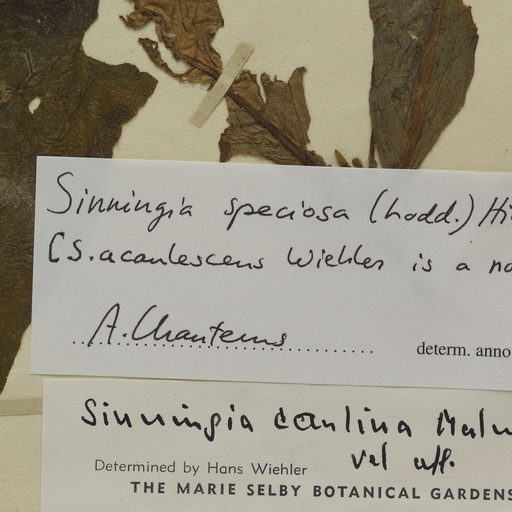 Sinningia speciosa (Lodd.) Hi
[S. acaulescens Wiehler is a no
A. Chautems
determ. anno
Sinningia caulina Malm
vel aff.
Determined by Hans Wiehler
THE MARIE SELBY BOTANICAL GARDENS